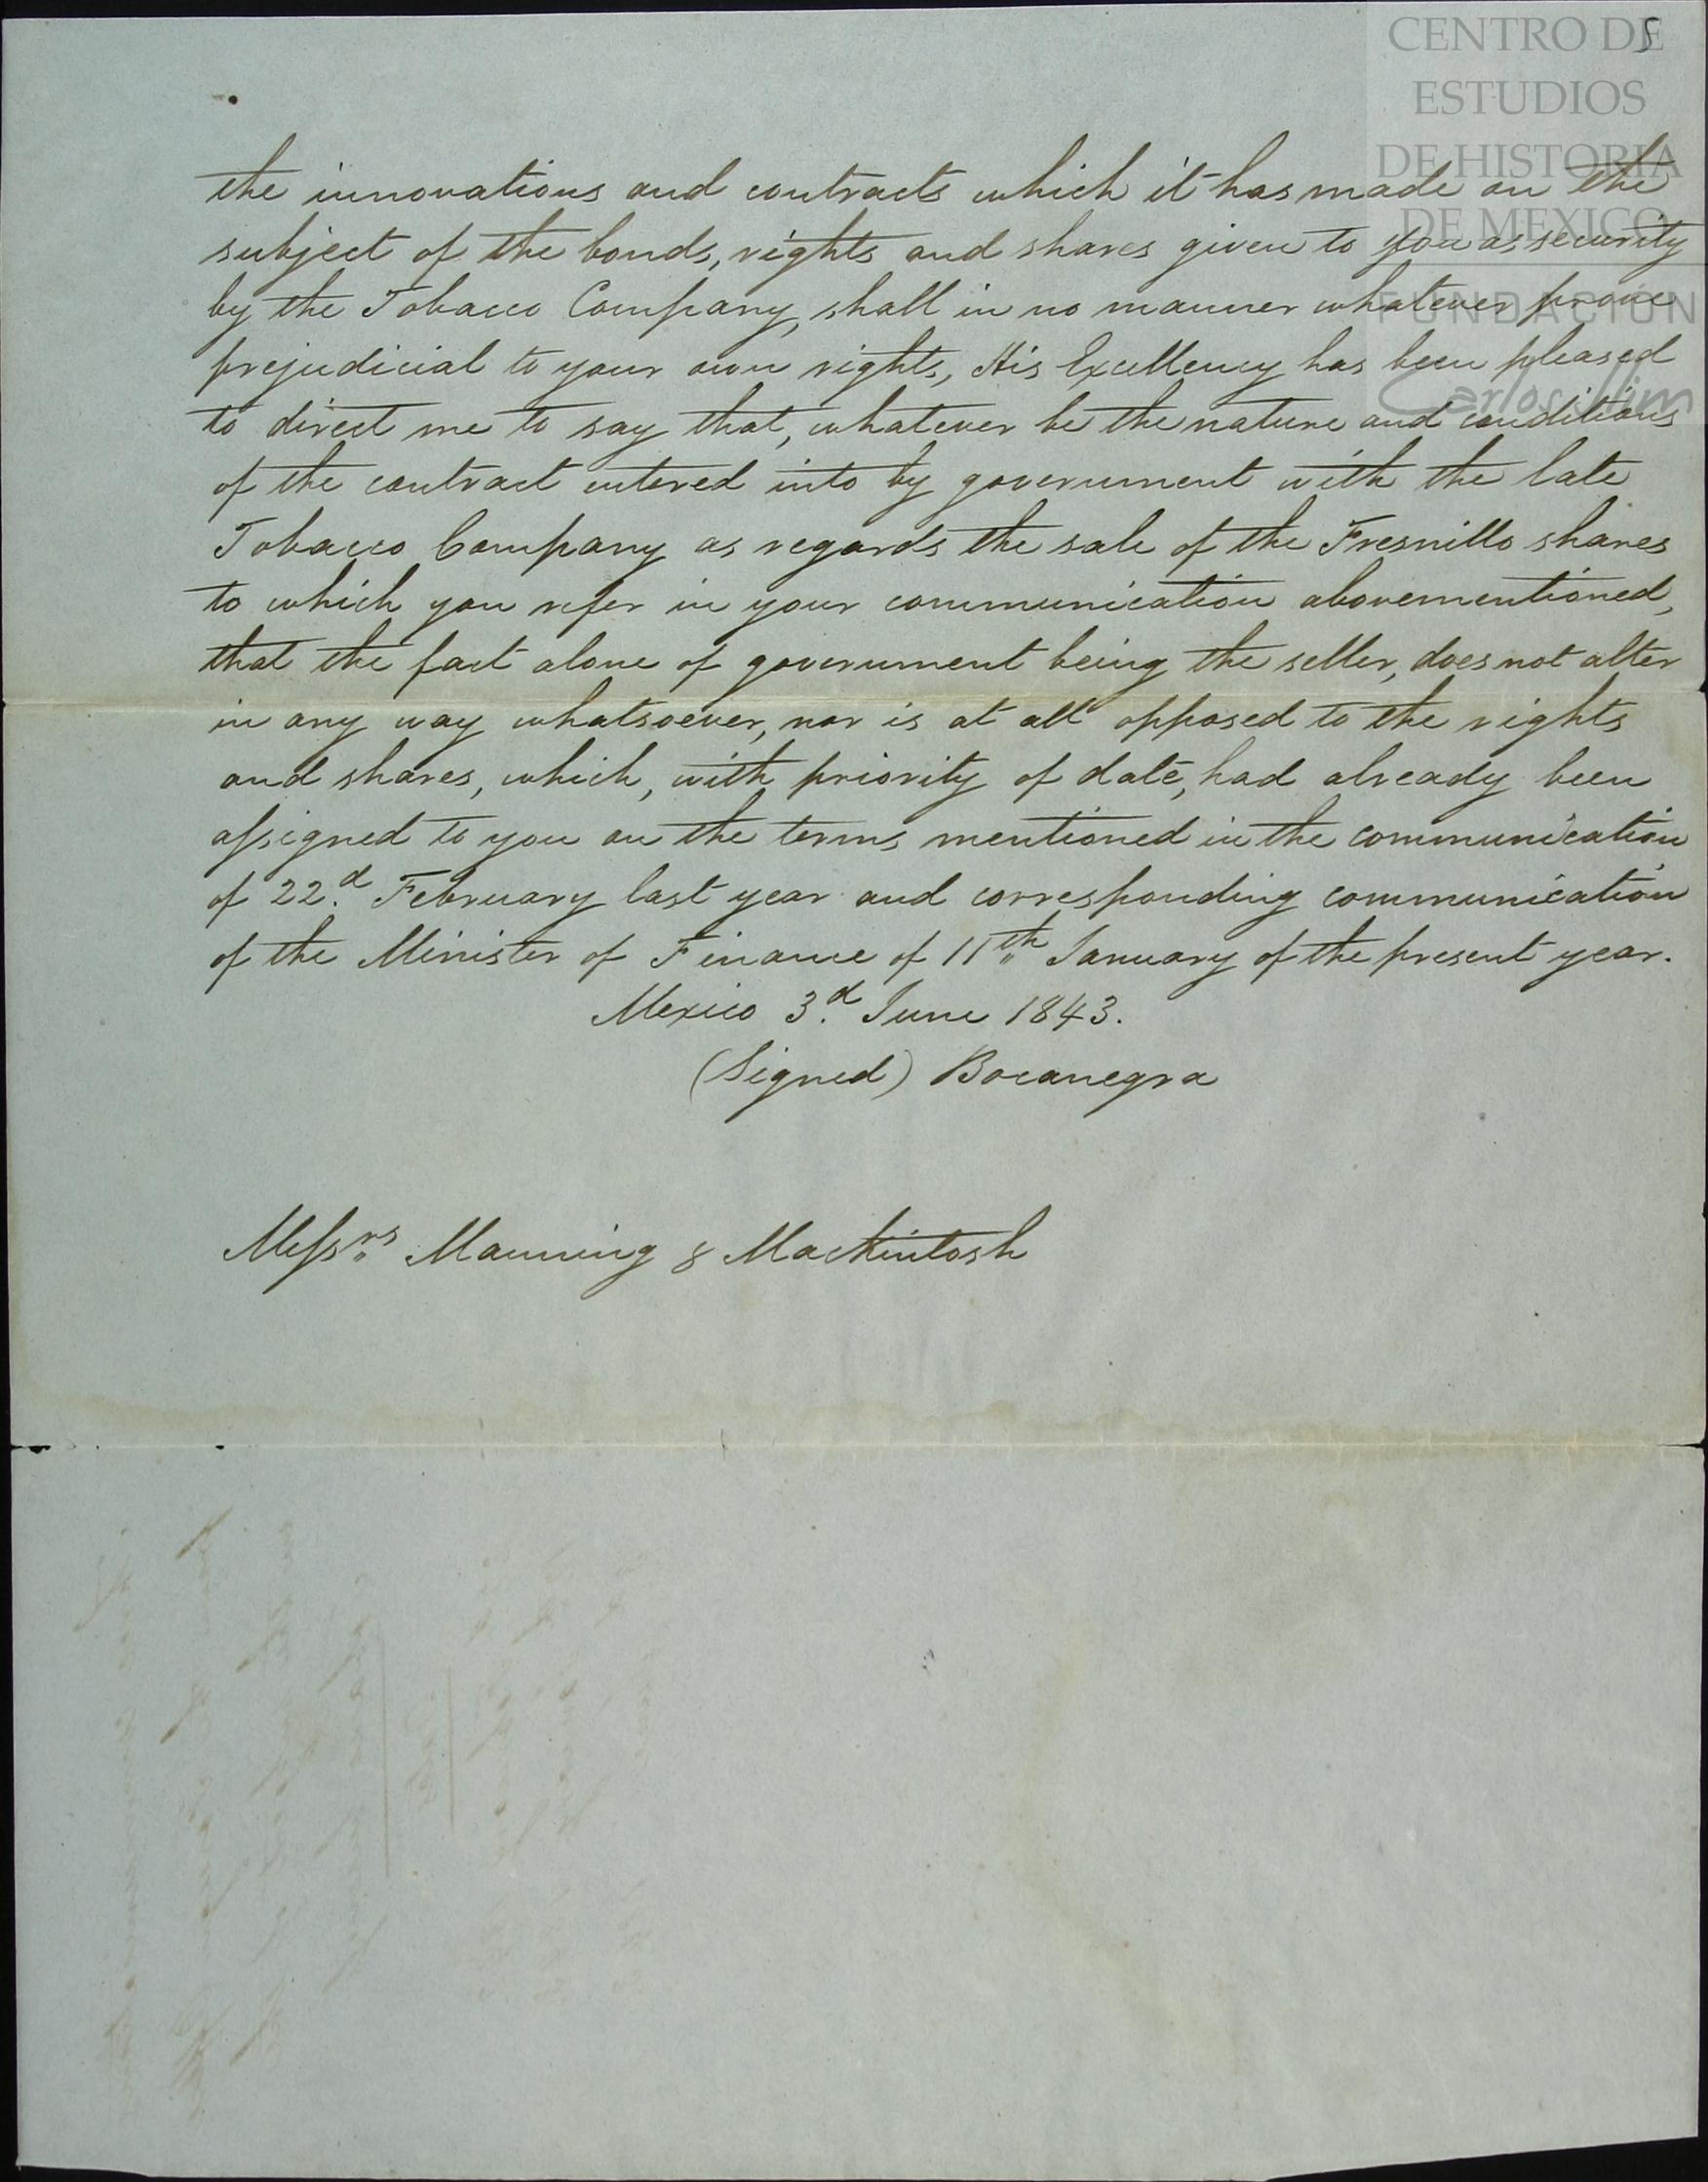 5
CENTRO DE
ESTUDIOS
DE HISTORIA
DE MEXICO
FUNDACIÓN
Carlos Slim
the innovations and contracts which it has made on the
subject of the bonds, rights and shares given to you as security
by the Tobacco Company, shall in no manner whatever prove
prejudicial to your own rights, His Excellency has been pleased
to direct me to say that, whatever be the nature and conditions
of the contract entered into by government with the late
Tobacco Company as regards the sale of the Fresnillo shares
to which you refer in your communication abovementioned,
that the fact alone of government being the seller, does not alter
in any way whatsoever, nor is at all opposed to the rights
and shares, which, with priority of date, had already been
assigned to you on the terms mentioned in the communication
of 22.d February last year and corresponding communication
of the Minister of Finance of 11th January of the present year.
Mexico 3.d June 1843.
(Signed) Bocanegra
Messrs Manning & Mackintosh